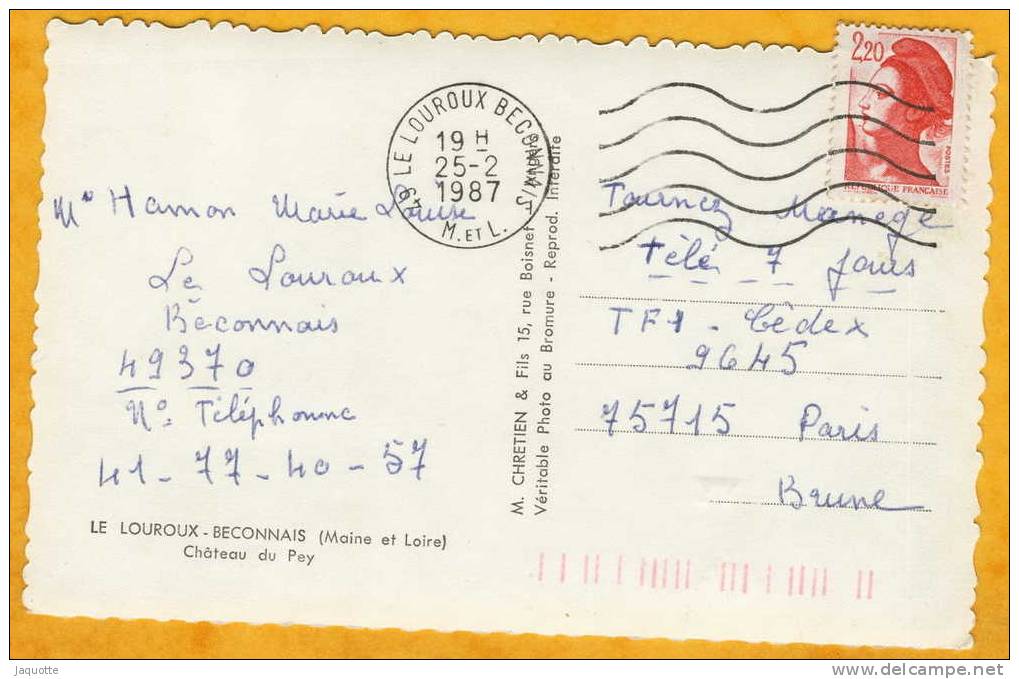 49 LE LOUROUX BECONNAIS
19 H
25-2
1987
M. ET L.
2,20
POSTES
REPUBLIQUE FRANÇAISE
Hamon Marie Louise
Le Louroux
Béconnais
49370
N° Téléphonne
41-77-40-57
LE LOUROUX-BECONNAIS (Maine et Loire)
Château du Pey
M. CHRETIEN & Fils 15, rue Boisnet
Véritable Photo au Bromure - Reprod. Interdite
Tournez Manege
Télé 7 Jours
TF1 - Cédex
9645
75715 Paris
Brune
Jaquotte
www.delcampe.net